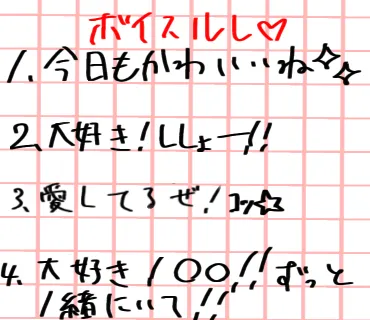 ボイスルし♡
1.今日もかわいいね✧✧
2、大好き!ししょー!!
3、愛してるぜ!コツ☆
4.大好き!〇〇!!ずっと
1緒にいて!!